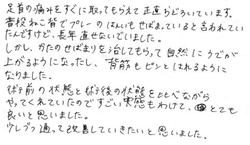 足首の痛みをすぐに取ってもらえて正直おどろいています。
普段ねこ背でプレーのはんいもせばまっていると言われてい
たんですけど、長年直せないでいました。
しかし、かたのせばまりを治してもらって自然にうでが
上がるようになったし、背筋もピンとはれるように
なりました。
施術前の状態と施術後の状態を比べながら
やってくれていたのですごい実感もわけて、とても
良いと思いました。
少しづつ通って改善していきたいと思いました。